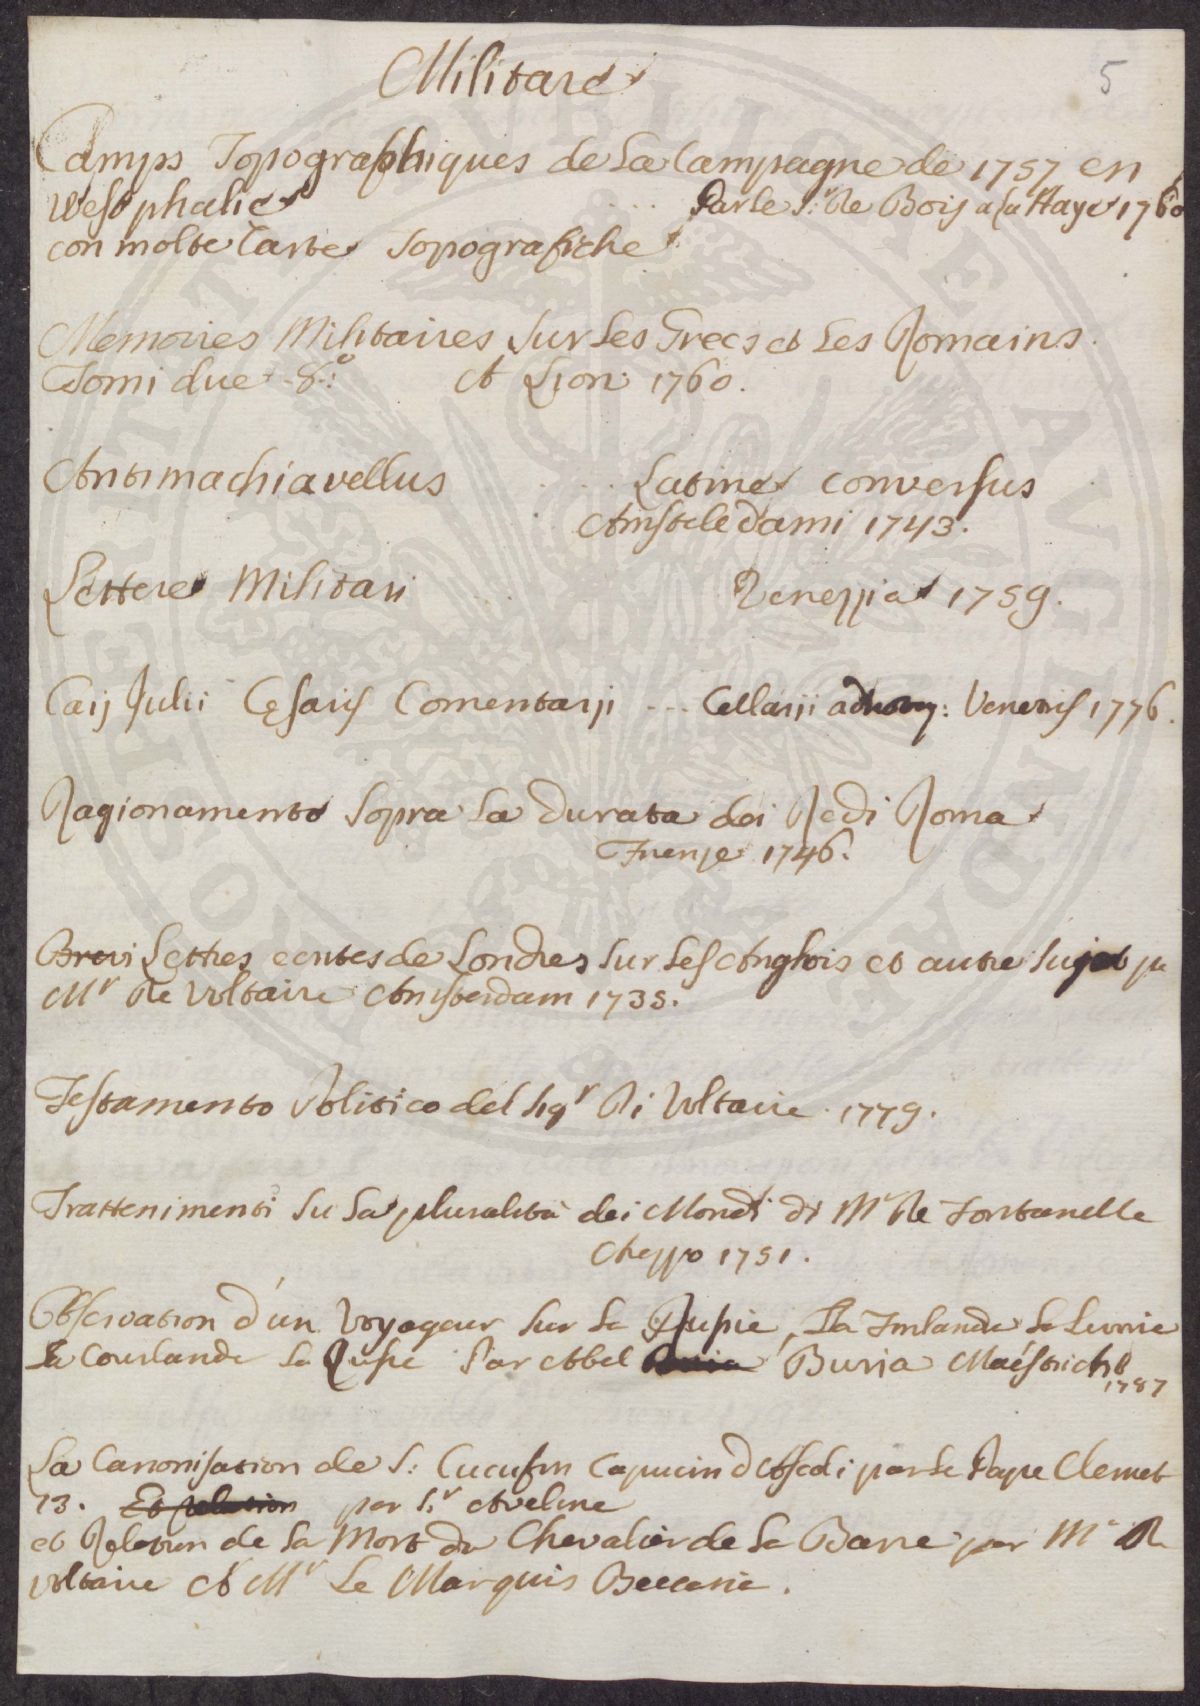 Militare
5
Camps Topographiques de La Campagne de 1757 en
Westphalie .... Par Le S.r De Bois a la Haye 1760
con molte Carte Topografiche
Memoires Militaires sur Les Grecs et Les Romains.
Tomi due 8.o A Lion 1760.
Antimachiavellus .... Latine conversus
Amsteledami 1743.
Lettere Militari Venezzia 1759.
Caij Julii Cesaris Comentarij --- Cellarij Venetiis 1776.
Ragionamento sopra La durata dei Re di Roma
Firenze 1746.
Lettres ecrites de Londres sur Les Anglois et autre sujet
M.r De Voltaire Amsterdam 1735.
Testamento Politico del Sig.r Di Voltaire 1779.
Trattenimenti su La pluralità dei Mondi di M.r De Fontanelle
1751.
Observation d'un Voyageur sur La Rusie, La Finlande La Livonie
La Courlande La Rusie Par Abbel Burja Maéstricht
1787
La Canonisation de S: Cucufin Capucin d'Ascoli par Le Pape Clemet
13. Et relation par S.r Aveline
et Relation de La Mort du Chevalier de La Barre par M.r De
Voltaire A M.r Le Marquis Beccarie.